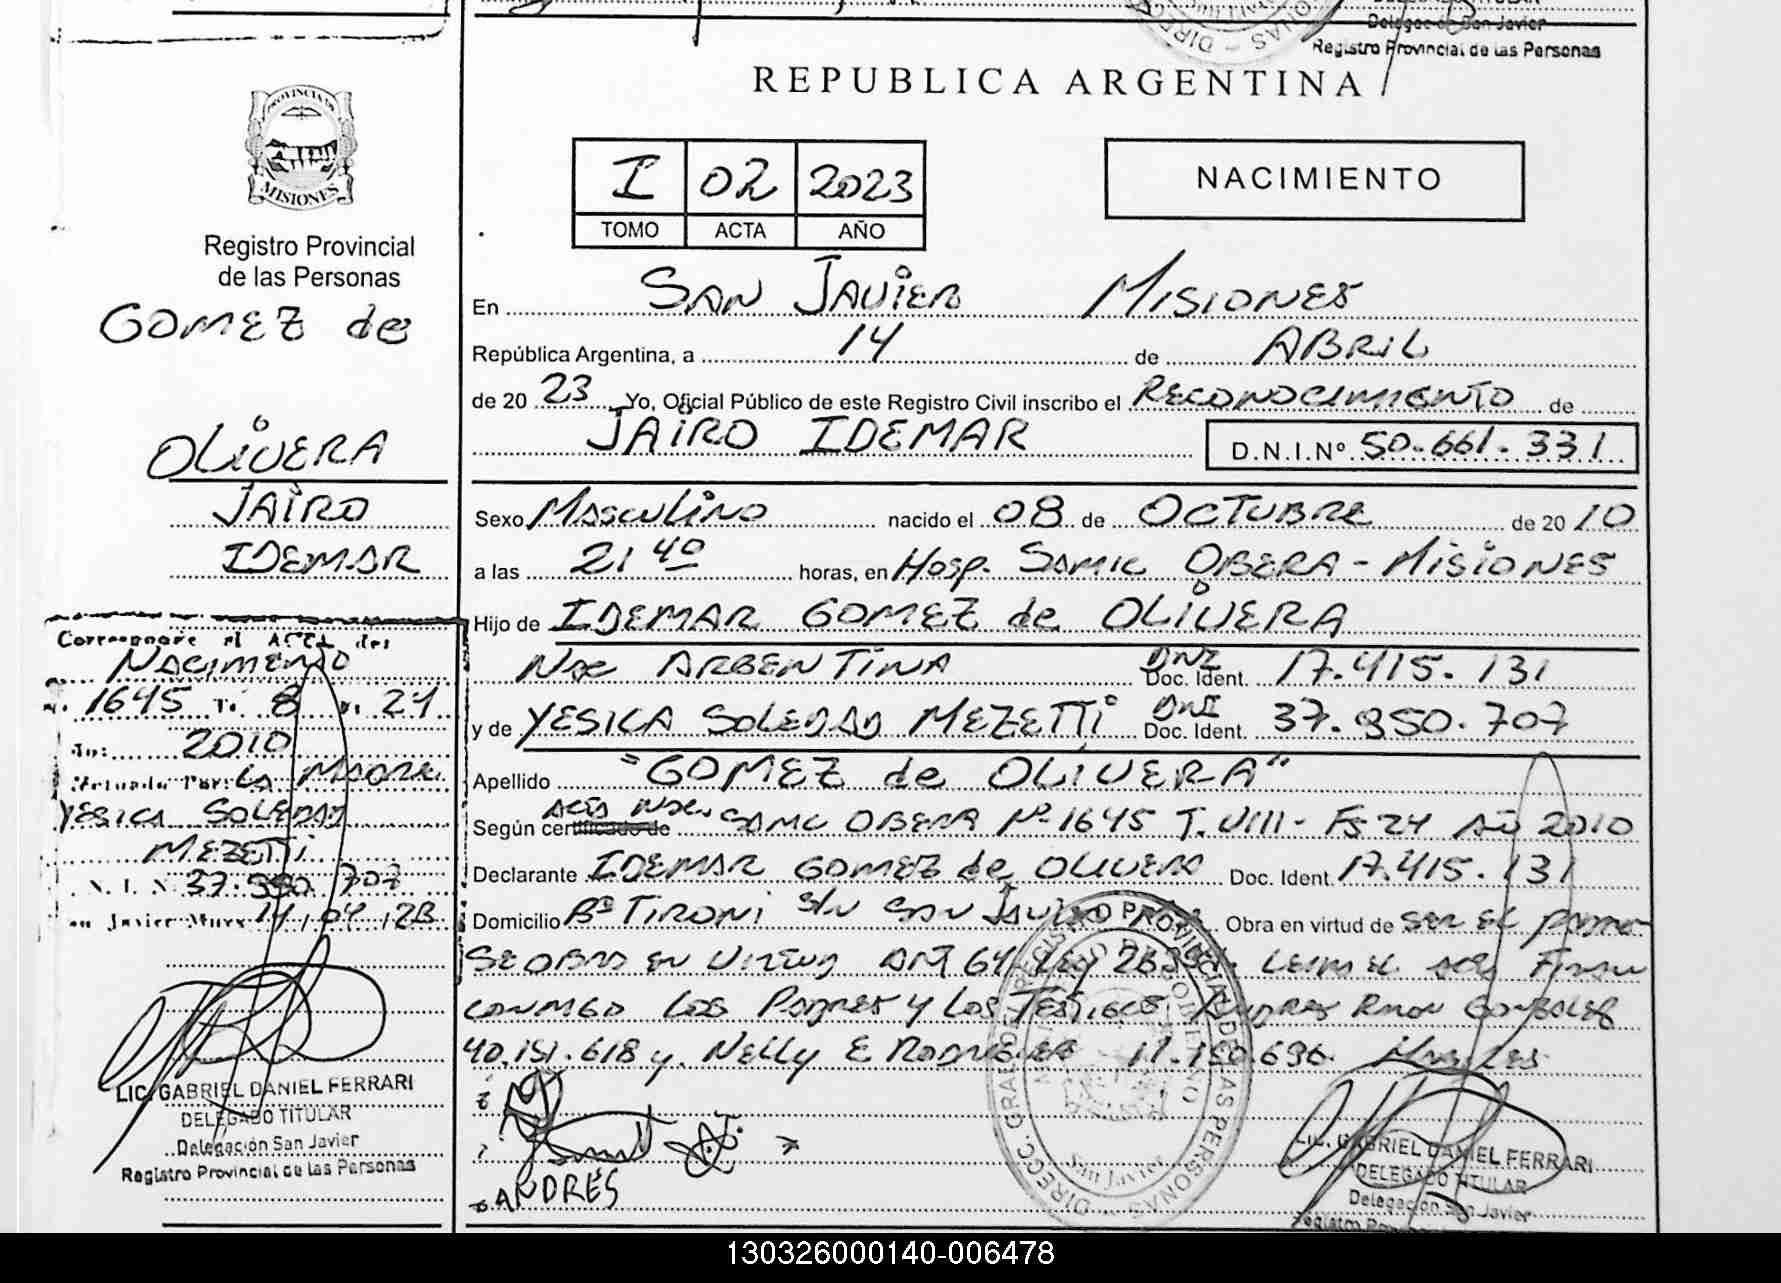 Delegac de San Javier
Registro Provincial de las Personas
REPUBLICA ARGENTINA
PROVINCIA DE
MISIONES
Registro Provincial
de las Personas
GOMEZ de
OLIVERA
JAIRO
IDEMAR
I 02 2023
TOMO ACTA AÑO
NACIMIENTO
En SAN JAVIER MISIONES
República Argentina, a 14 de ABRIL
de 20 23 Yo, Oficial Público de este Registro Civil inscribo el RECONOCIMIENTO de
JAIRO IDEMAR D.N.I.Nº 50.661.331
Sexo MASCULINO nacido el 08 de OCTUBRE de 20 10
a las 21 40 horas, en HOSP. SAMIC OBERA - MISIONES
Hijo de IDEMAR GOMEZ de OLIVERA
Nac ARGENTINA DNI Doc. Ident. 17.415.131
y de YESICA SOLEDAD MEZETTI DNI Doc. Ident. 37.950.707
Apellido "GOMEZ de OLIVERA"
Según certificado de ACTA NAC. SAMIC OBERA Nº 1645 T. VIII - Fs 24 Año 2010
Declarante IDEMAR GOMEZ de OLIVERA Doc. Ident. 17.415.131
Domicilio Bº TIRONI S/N SAN JAVIER Obra en virtud de SER EL PADRE
SE OBRA EN VIRTUD ART 64 LEY FIRMAN
CONMIGO LOS PADRES y LOS TESTIGOS ANDRES RAMON GONZALEZ
40.151.618 y NELLY E RODRIGUEZ
Corresponde al ACTA de:
NACIMIENTO
1645 T. 8 24
2010
LA MADRE
YESICA SOLEDAD
MEZETTI
D. N. I. N. 37.950.707
San Javier Mnes 14/04/23
LIC. GABRIEL DANIEL FERRARI
DELEGADO TITULAR
Delegación San Javier
Registro Provincial de las Personas
ANDRÉS
DIRECC. GRAL. DE REGISTRO PROVINCIAL DE LAS PERSONAS
San Javier
LIC. GABRIEL DANIEL FERRARI
DELEGADO TITULAR
Delegación San Javier
130326000140-006478